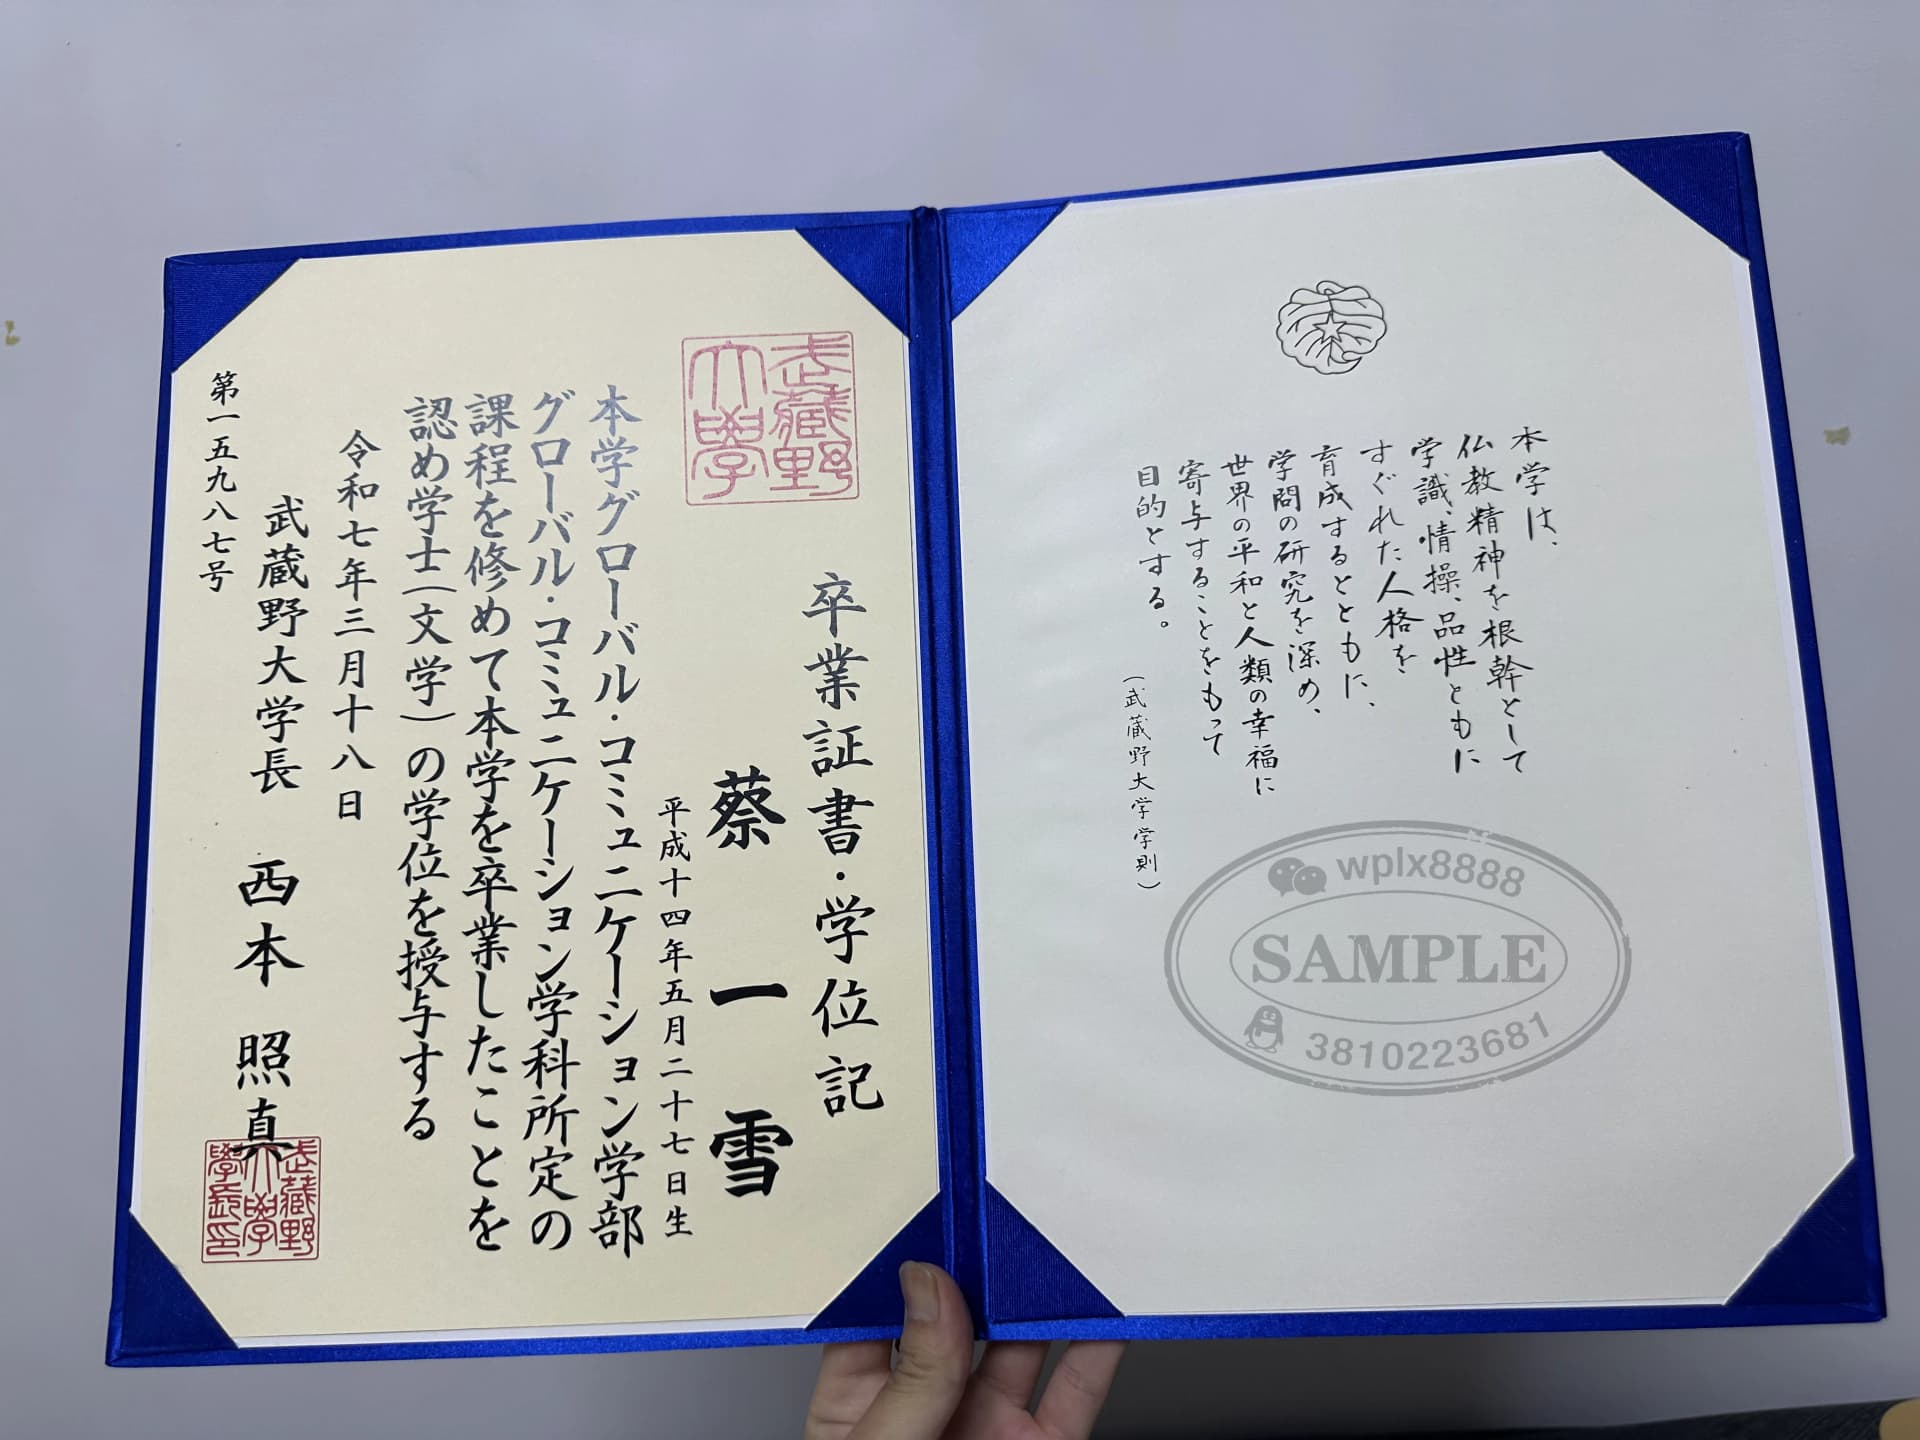 本学は、
仏教精神を根幹として
学識、情操、品性ともに
すぐれた人格を
育成するとともに、
学問の研究を深め、
世界の平和と人類の幸福に
寄与することをもって
目的とする。
(武蔵野大学学則)
wplx8888
SAMPLE
3810223681
武蔵野
大學
卒業証書・学位記
蔡一雪
平成十四年五月二十七日生
本学グローバル・コミュニケーション学部
グローバル・コミュニケーション学科所定の
課程を修めて本学を卒業したことを
認め学士(文学)の学位を授与する
令和七年三月十八日
武蔵野大学長 西本照真
武蔵野
大學
學長印
第一五九八七号